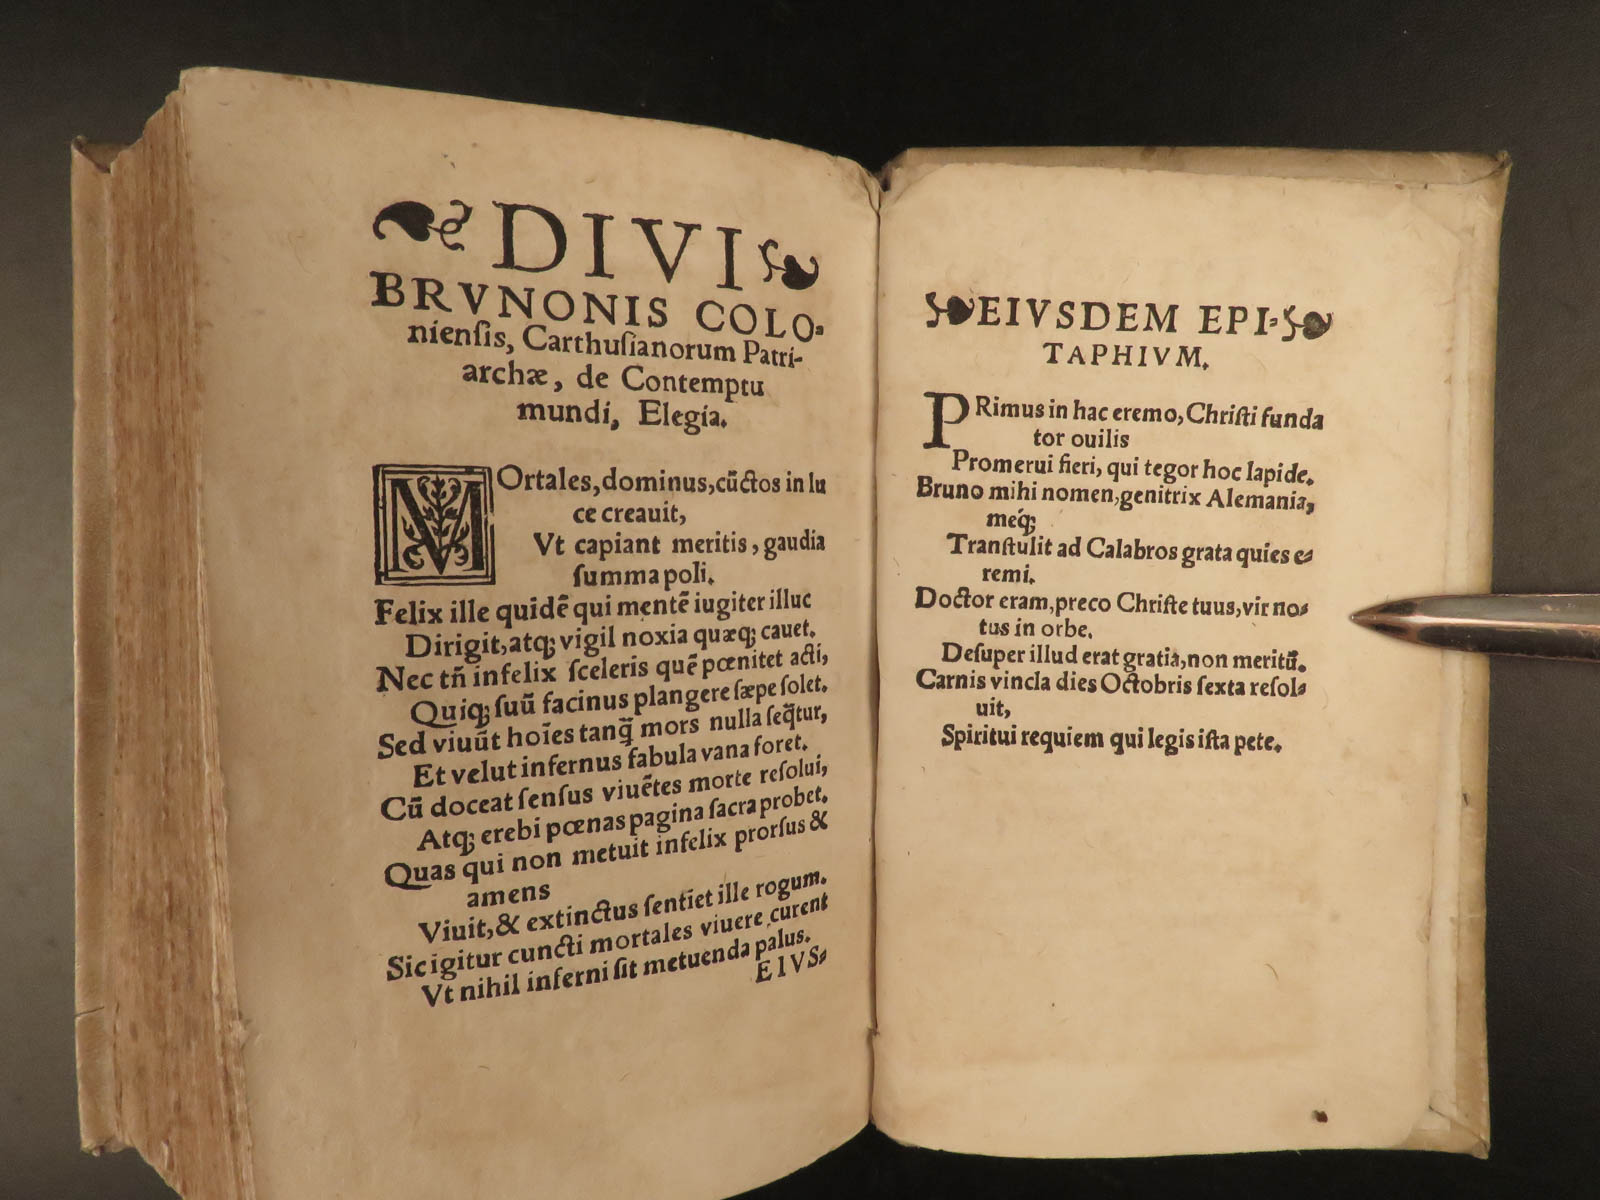 DIVI
BRVNONIS COLO-
nienſis, Carthuſianorum Patri-
archæ, de Contemptu
mundi, Elegia.
MOrtales, dominus, cūctos in lu
ce creauit,
Vt capiant meritis, gaudia
ſumma poli.
Felix ille quidē qui mentē iugiter illuc
Dirigit, atq; vigil noxia quæq; cauet.
Nec tñ infelix ſceleris quē pœnitet acti,
Quiq; ſuū facinus plangere ſæpe ſolet.
Sed viuūt hoīes tanq̃ mors nulla ſeq̃tur,
Et velut infernus fabula vana foret.
Cū doceat ſenſus viuētes morte reſolui,
Atq; erebi pœnas pagina ſacra probet.
Quas qui non metuit infelix prorſus &
amens
Viuit, & extinctus ſentiet ille rogum.
Sic igitur cuncti mortales viuere curent
Vt nihil inferni ſit metuenda palus.
EIVS-
EIVSDEM EPI-
TAPHIVM.
PRimus in hac eremo, Chriſti funda
tor ouilis
Promerui fieri, qui tegor hoc lapide.
Bruno mihi nomen, genitrix Alemania,
meq́;
Tranſtulit ad Calabros grata quies e-
remi.
Doctor eram, preco Chriſte tuus, vir no-
tus in orbe.
Deſuper illud erat gratia, non meritū.
Carnis vincla dies Octobris ſexta reſol-
uit,
Spiritui requiem qui legis iſta pete.